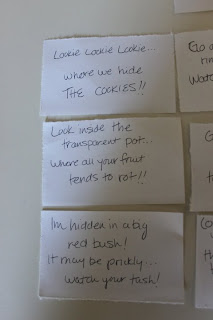 Lookie Lookie Lookie...
where we hide
THE COOKIES!!
Look inside the
transparent pot...
Where all your fruit
tends to rot!!
Im hidden in a big
red bush!
It may be prickly...
watch your tush!
Go
Watch